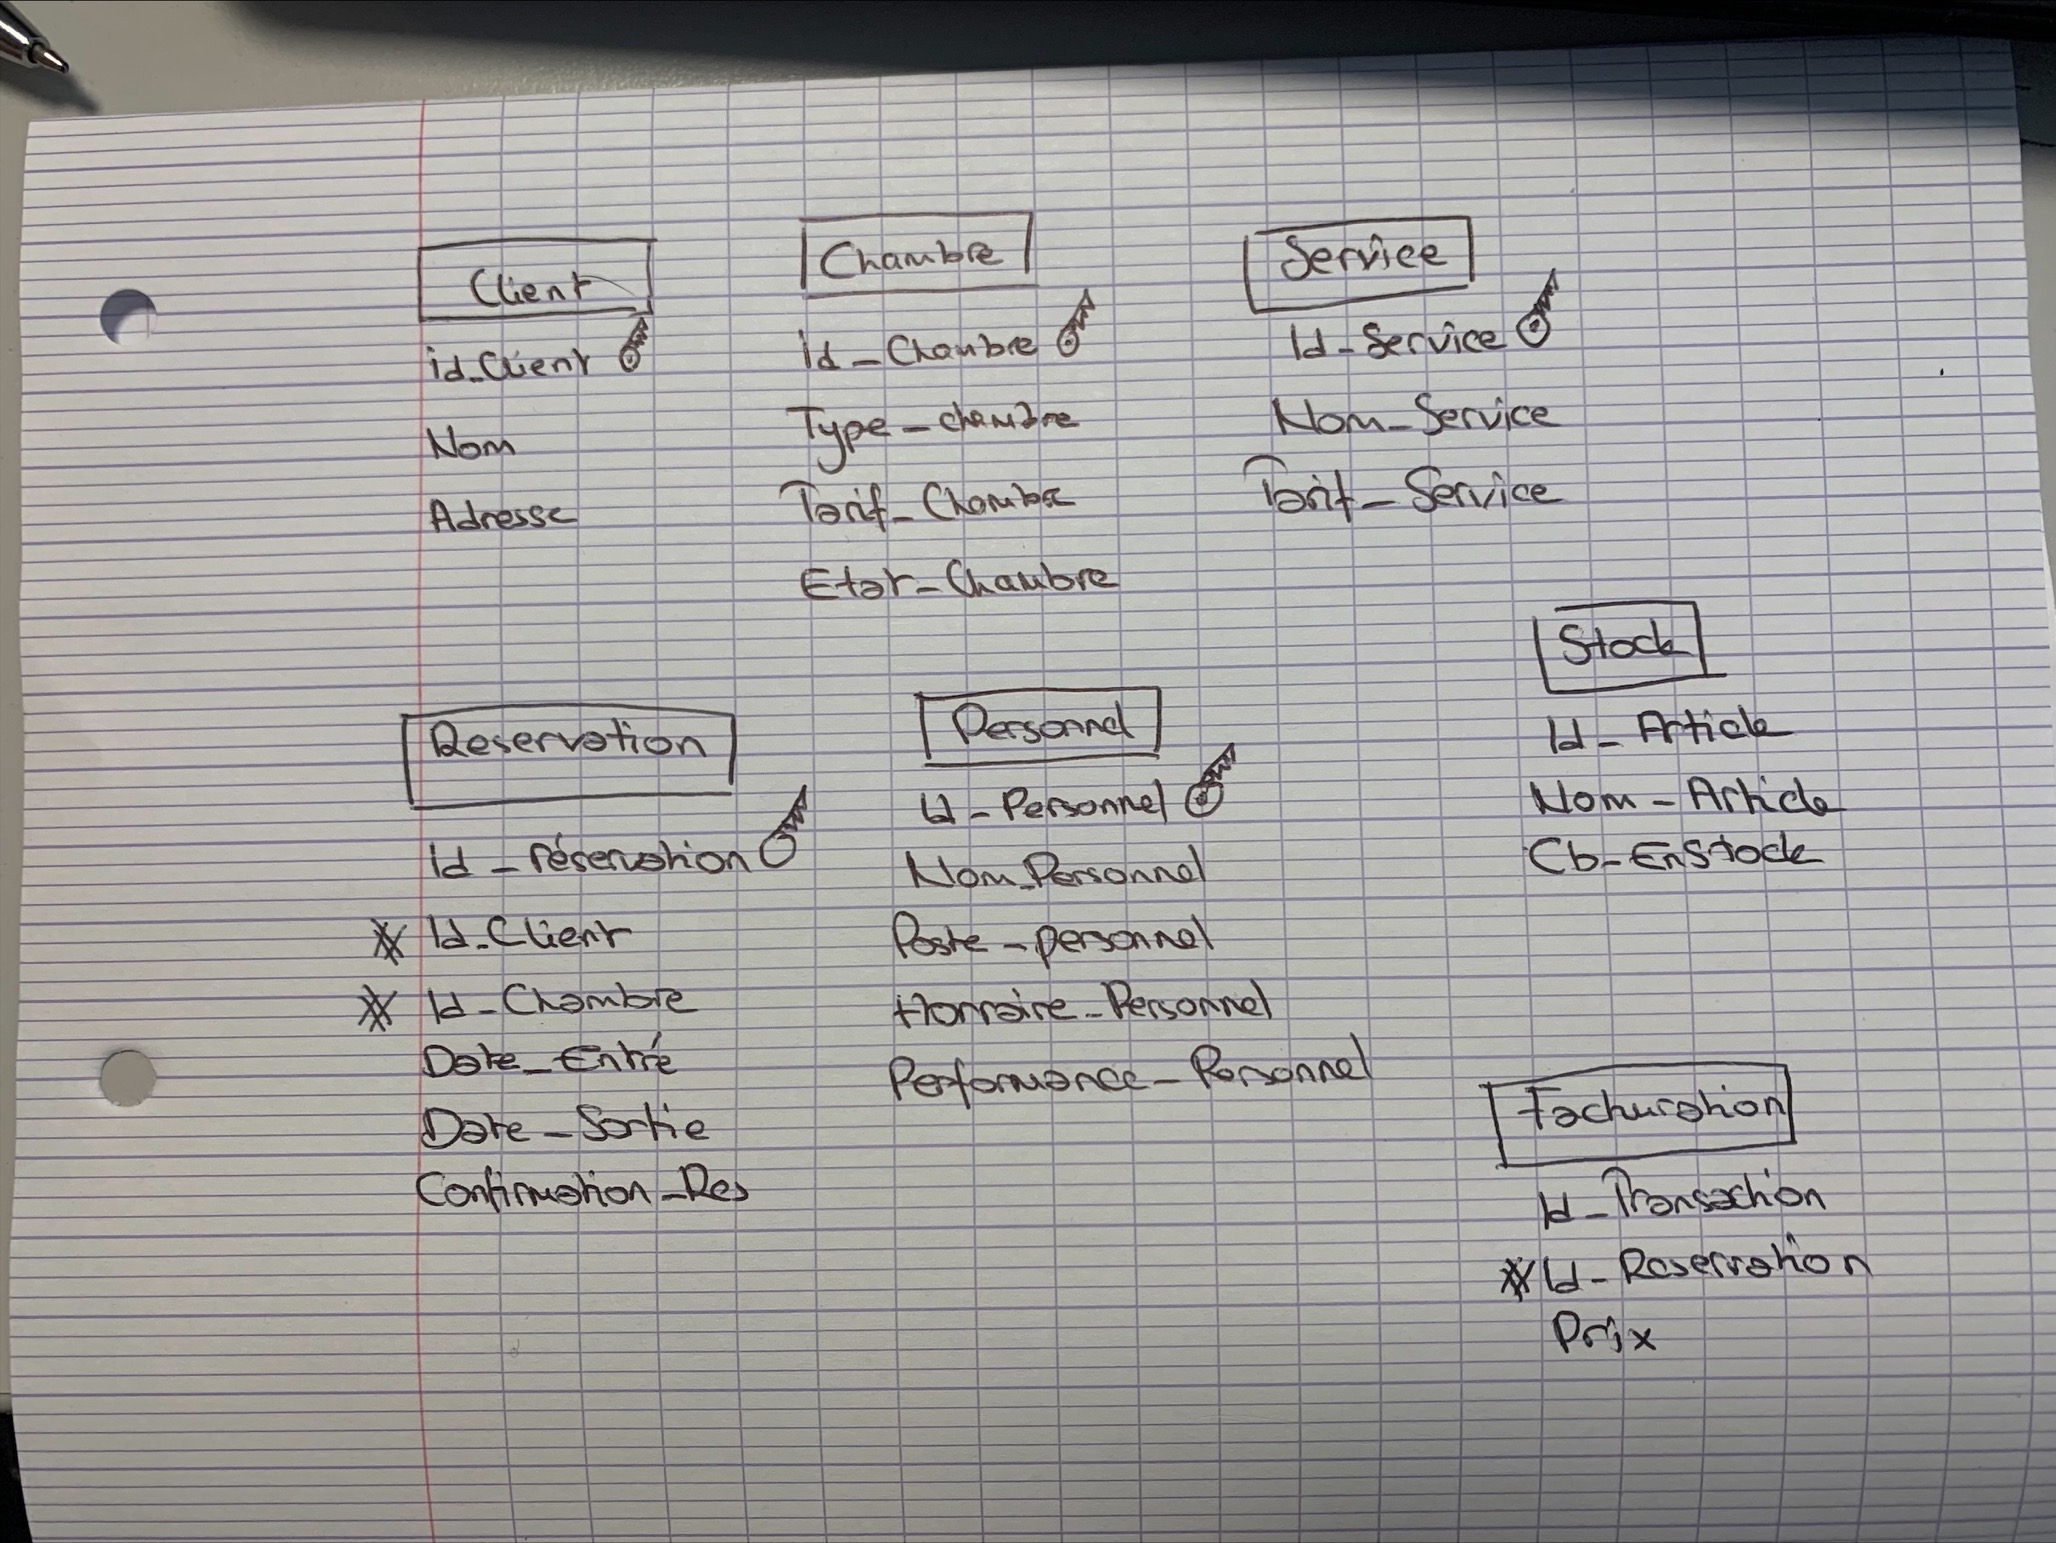 Client
id_Client
Nom
Adresse
Chambre
id_Chambre
Type_chambre
Tarif_Chambre
Etat_Chambre
Service
Id_Service
Nom_Service
Tarif_Service
Reservation
id_réservation
Id_Client
Id_Chambre
Date_Entré
Date_Sortie
Confirmation_Res
Personnel
Id_Personnel
Nom_Personnel
Poste_personnel
Horraire_Personnel
Performance_Personnel
Stock
Id_Article
Nom_Article
Cb_EnStock
Facturation
Id_Transaction
Id_Reservation
Prix